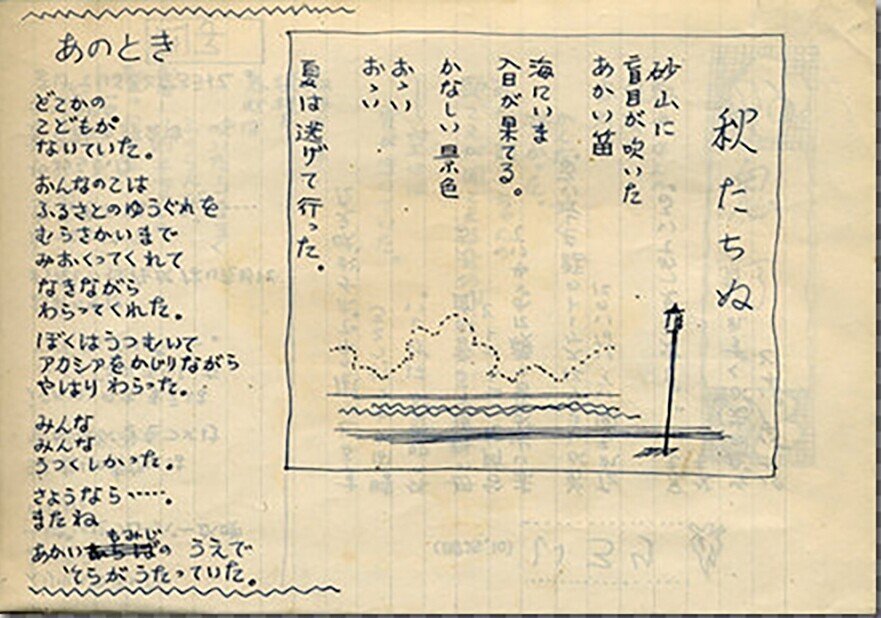 あのとき
どこかの
こどもが
ないていた。
おんなのこは
ふるさとのゆうぐれを……
むらさかいまで
みおくってくれて
なきながら
わらってくれた。
ぼくはうつむいて
アカシアをかじりながら
やはりわらった。
みんな
みんな
うつくしかった。
さようなら……。
またね
あかいもみじの うえで
そらがうたっていた。
秋たちぬ
砂山に
盲目が吹いた
あかい笛
海にいま
入日が果てる。
かなしい景色
おゝい
おゝい
夏は逃げて行った。